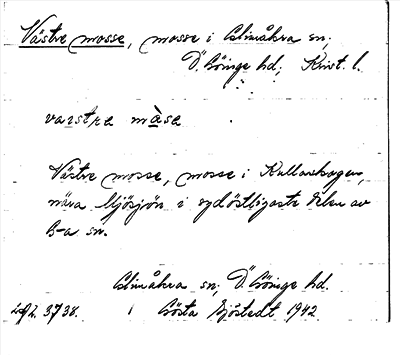 Västre mosse, mosse i Glimåkra sn,
Ö. Göinge hd, Krist. l.
vastre måse
Västre mosse, mosse i Kullaskogen,
nära Mjösjön i sydöstligaste delen av
G-a sn.
Glimåkra sn, Ö Göinge hd.
Gösta Sjöstedt 1942